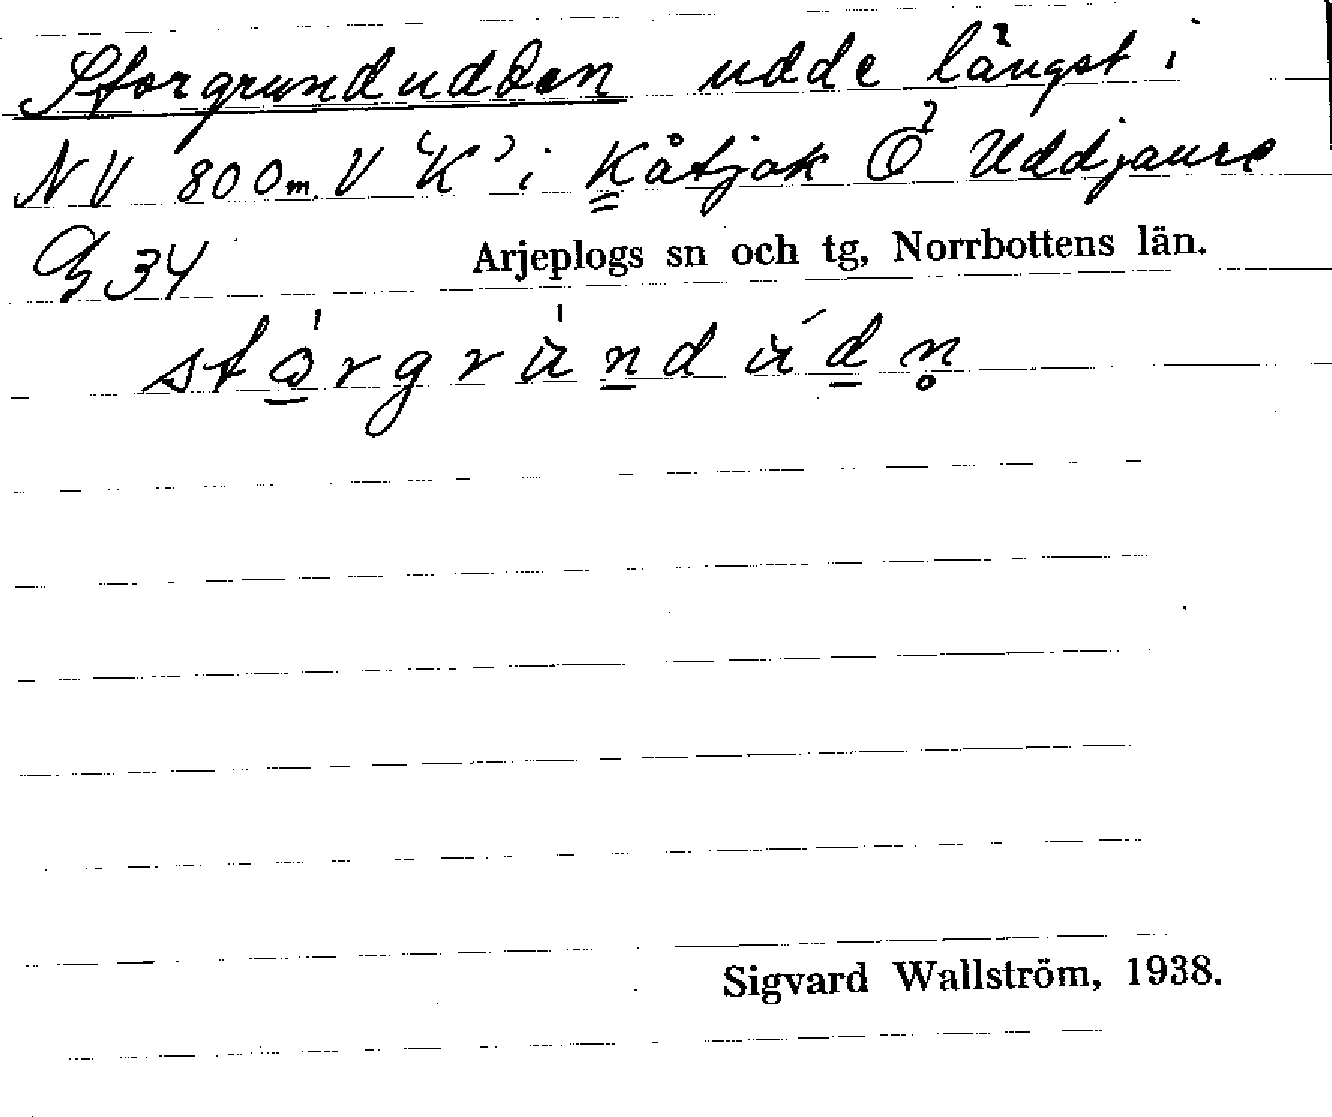 Storgrundudden udde längst i
NV 800 m. V "K" i Kåtjak Ö Uddjaure
G 34 Arjeplogs sn och tg, Norrbottens län.
stórgrùndúdn̥
Sigvard Wallström, 1938.